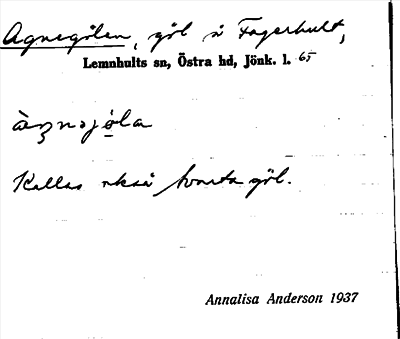 Agnegölen, göl å Fagerhult,
Lemnhults sn, Östra hd, Jönk. l. 65
Kallas också göl.
Annalisa Anderson 1937